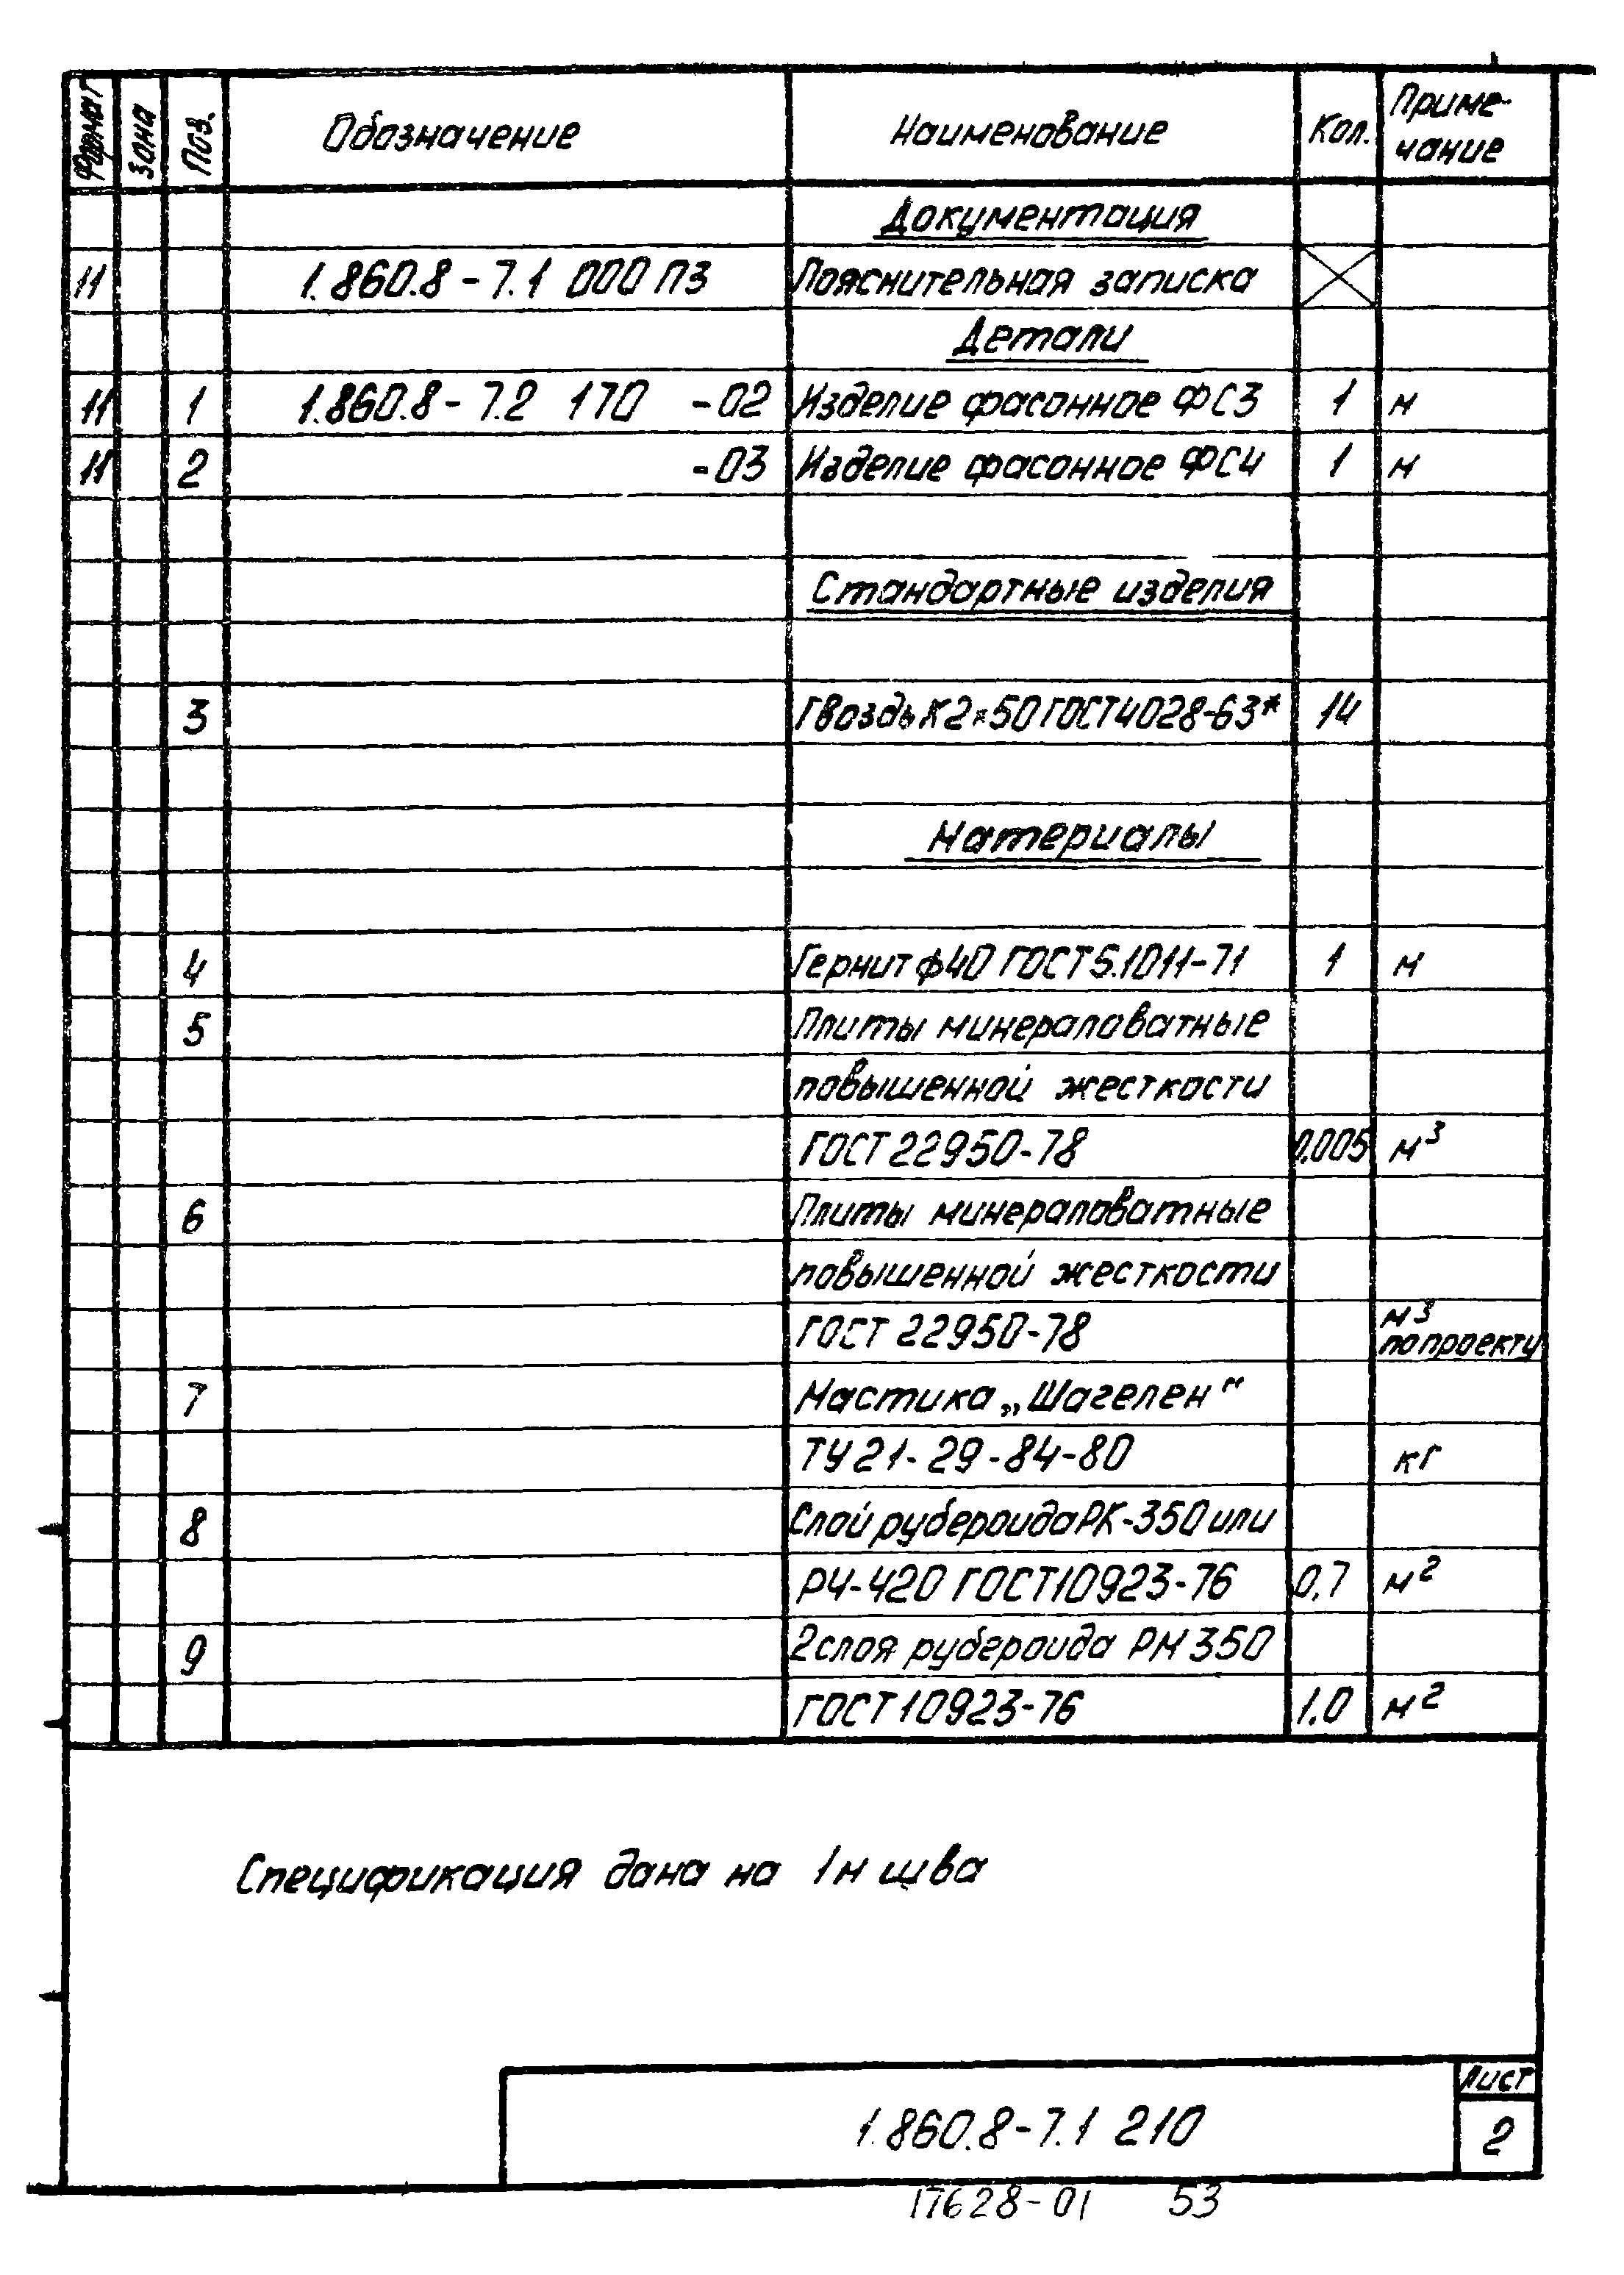 Формат Зона Поз. Обозначение Наименование Кол. Приме-
чание
Документация
11 1.860.8-7.1 000 ПЗ Пояснительная записка
Детали
11 1 1.860.8-7.2 170 -02 Изделие фасонное ФС3 1 м
11 2 -03 Изделие фасонное ФС4 1 м
Стандартные изделия
3 Гвоздь К2×50 ГОСТ 4028-63* 14
Материалы
4 Гернит ф40 ГОСТ 5.1011-71 1 м
5 Плиты минераловатные
повышенной жесткости
ГОСТ 22950-78 0,005 м³
6 Плиты минераловатные
повышенной жесткости
ГОСТ 22950-78 м³
по проекту
7 Мастика „Шагелен“
ТУ 21-29-84-80 кг
8 Слой рубероида РК-350 или
РЧ-420 ГОСТ 10923-76 0,7 м²
9 2 слоя рубероида РМ 350
ГОСТ 10923-76 1.0 м²
Спецификация дана на 1м шва
1.860.8-7.1 210
Лист
2
17628-01 53